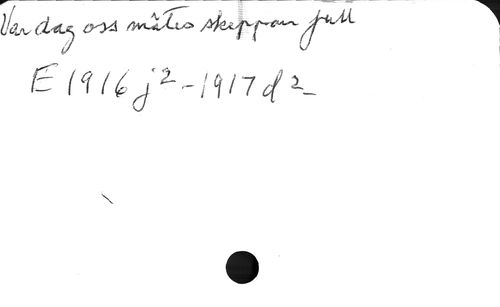 Var dag oss mätes skeppan full
E 1916 j² - 1917 d² -